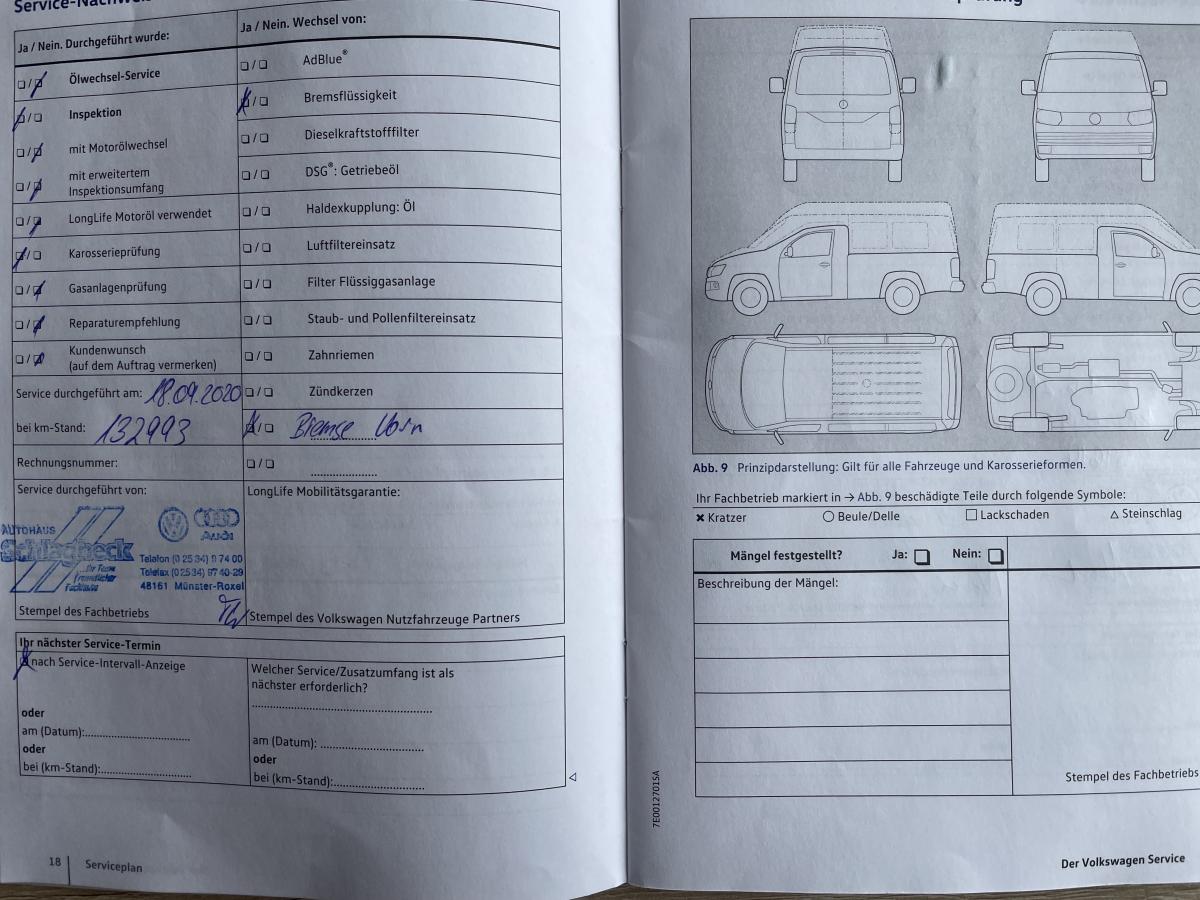 Service-Nachweis
Ja / Nein. Durchgeführt wurde:
Ölwechsel-Service
Inspektion
mit Motorölwechsel
mit erweitertem
Inspektionsumfang
LongLife Motoröl verwendet
Karosserieprüfung
Gasanlagenprüfung
Reparaturempfehlung
Kundenwunsch
(auf dem Auftrag vermerken)
Service durchgeführt am: 18.09.2020
bei km-Stand: 132993
Rechnungsnummer:
Service durchgeführt von:
AUTOHAUS
Schlagheck
...Ihr Team
freundlicher
Fachleute
Audi
Telefon (0 25 34) 9 74 00
Telefax (0 25 34) 97 40-29
48161 Münster-Roxel
Stempel des Fachbetriebs
Ja / Nein. Wechsel von:
AdBlue®
Bremsflüssigkeit
Dieselkraftstofffilter
DSG®: Getriebeöl
Haldexkupplung: Öl
Luftfiltereinsatz
Filter Flüssiggasanlage
Staub- und Pollenfiltereinsatz
Zahnriemen
Zündkerzen
Bremse Vorn
LongLife Mobilitätsgarantie:
Stempel des Volkswagen Nutzfahrzeuge Partners
Ihr nächster Service-Termin
nach Service-Intervall-Anzeige
oder
am (Datum):
oder
bei (km-Stand):
Welcher Service/Zusatzumfang ist als
nächster erforderlich?
am (Datum):
oder
bei (km-Stand):
18
Serviceplan
Abb. 9 Prinzipdarstellung: Gilt für alle Fahrzeuge und Karosserieformen.
Ihr Fachbetrieb markiert in → Abb. 9 beschädigte Teile durch folgende Symbole:
Kratzer
Beule/Delle
Lackschaden
Steinschlag
Mängel festgestellt? Ja: Nein:
Beschreibung der Mängel:
Stempel des Fachbetriebs
7E0012701SA
Der Volkswagen Service